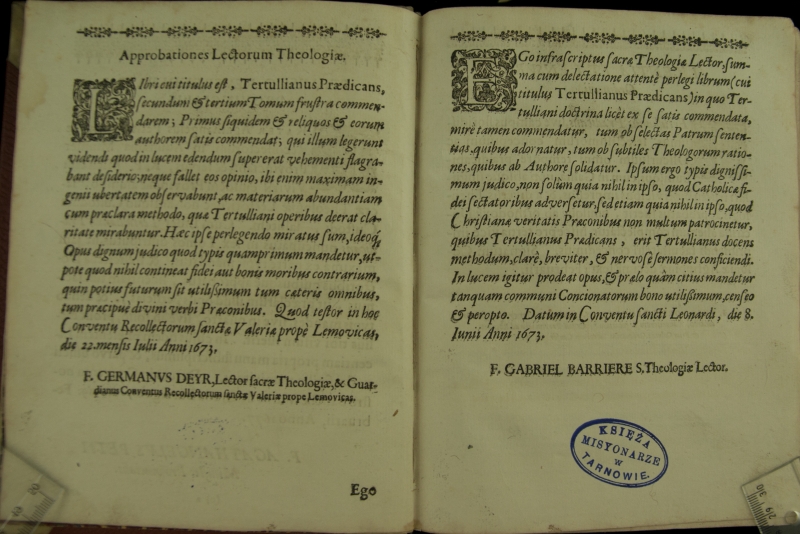 Approbationes Lectorum Theologiæ.
LIbri cui titulus est, Tertullianus Prædicans,
secundum & tertium Tomum frustra commen-
darem; Primus siquidem & reliquos & eorum
authorem satis commendat; qui illum legerunt
videndi quod in lucem edendum supererat vehementi flagra-
bant desiderio; neque fallet eos opinio, ibi enim maximam in-
genii ubertatem observabunt, ac materiarum abundantiam
cum præclara methodo, quæ Tertulliani operibus deerat cla-
ritate mirabuntur. Hæc ipse perlegendo miratus sum, ideoq;
Opus dignum judico quod typis quamprimum mandetur, ut-
pote quod nihil contineat fidei aut bonis moribus contrarium,
quin potius futurum sit utilissimum tum cæteris omnibus,
tum præcipuè divini verbi Præconibus. Quod testor in hoc
Conventu Recollectorum sanctæ Valeriæ propè Lemovicas,
die 22. mensis Iulii Anni 1673.
F. GERMANVS DEYR, Lector sacræ Theologiæ, & Guar-
dianus Conventus Recollectorum sanctæ Valeriæ prope Lemovicas.
Ego
EGo infrascriptus sacræ Theologiæ Lector, sum-
ma cum delectatione attentè perlegi librum (cui
titulus Tertullianus Prædicans) in quo Ter-
tulliani doctrina licèt ex se satis commendata,
mirè tamen commendatur, tum ob selectas Patrum senten-
tias, quibus adornatur, tum ob subtiles Theologorum ratio-
nes, quibus ab Authore solidatur. Ipsum ergo typis dignissi-
mum judico, non solùm quia nihil in ipso, quod Catholicæ fi-
dei sectatoribus adversetur, sed etiam quia nihil in ipso, quod
Christianæ veritatis Præconibus non multum patrocinetur,
quibus Tertullianus Prædicans, erit Tertullianus docens
methodum, clarè, breviter, & nervosè sermones conficiendi.
In lucem igitur prodeat opus, & prælo quàm citius mandetur
tanquam communi Concionatorum bono utilissimum, censeo
& peropto. Datum in Conventu sancti Leonardi, die 8.
Iunii Anni 1673.
F. GABRIEL BARRIERE S. Theologiæ Lector.
KSIĘŻA
MISYONARZE
w
TARNOWIE.